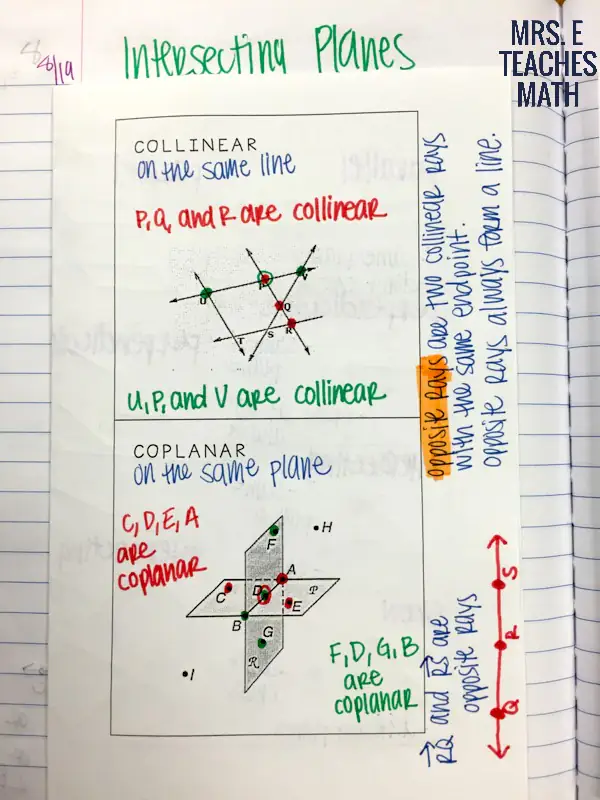 8/19
Intersecting Planes
MRS. E
TEACHES
MATH
COLLINEAR
on the same line
P, Q, and R are collinear
U
P
V
Q
T
S
R
U, P, and V are collinear
COPLANAR
on the same plane
C, D, E, A
are
coplanar
F
H
A
C
D
E
P
B
G
R
I
F, D, G, B
are
coplanar
opposite rays are two collinear rays
with the same endpoint.
opposite rays always form a line.
RQ and RS are
opposite rays
S
R
Q